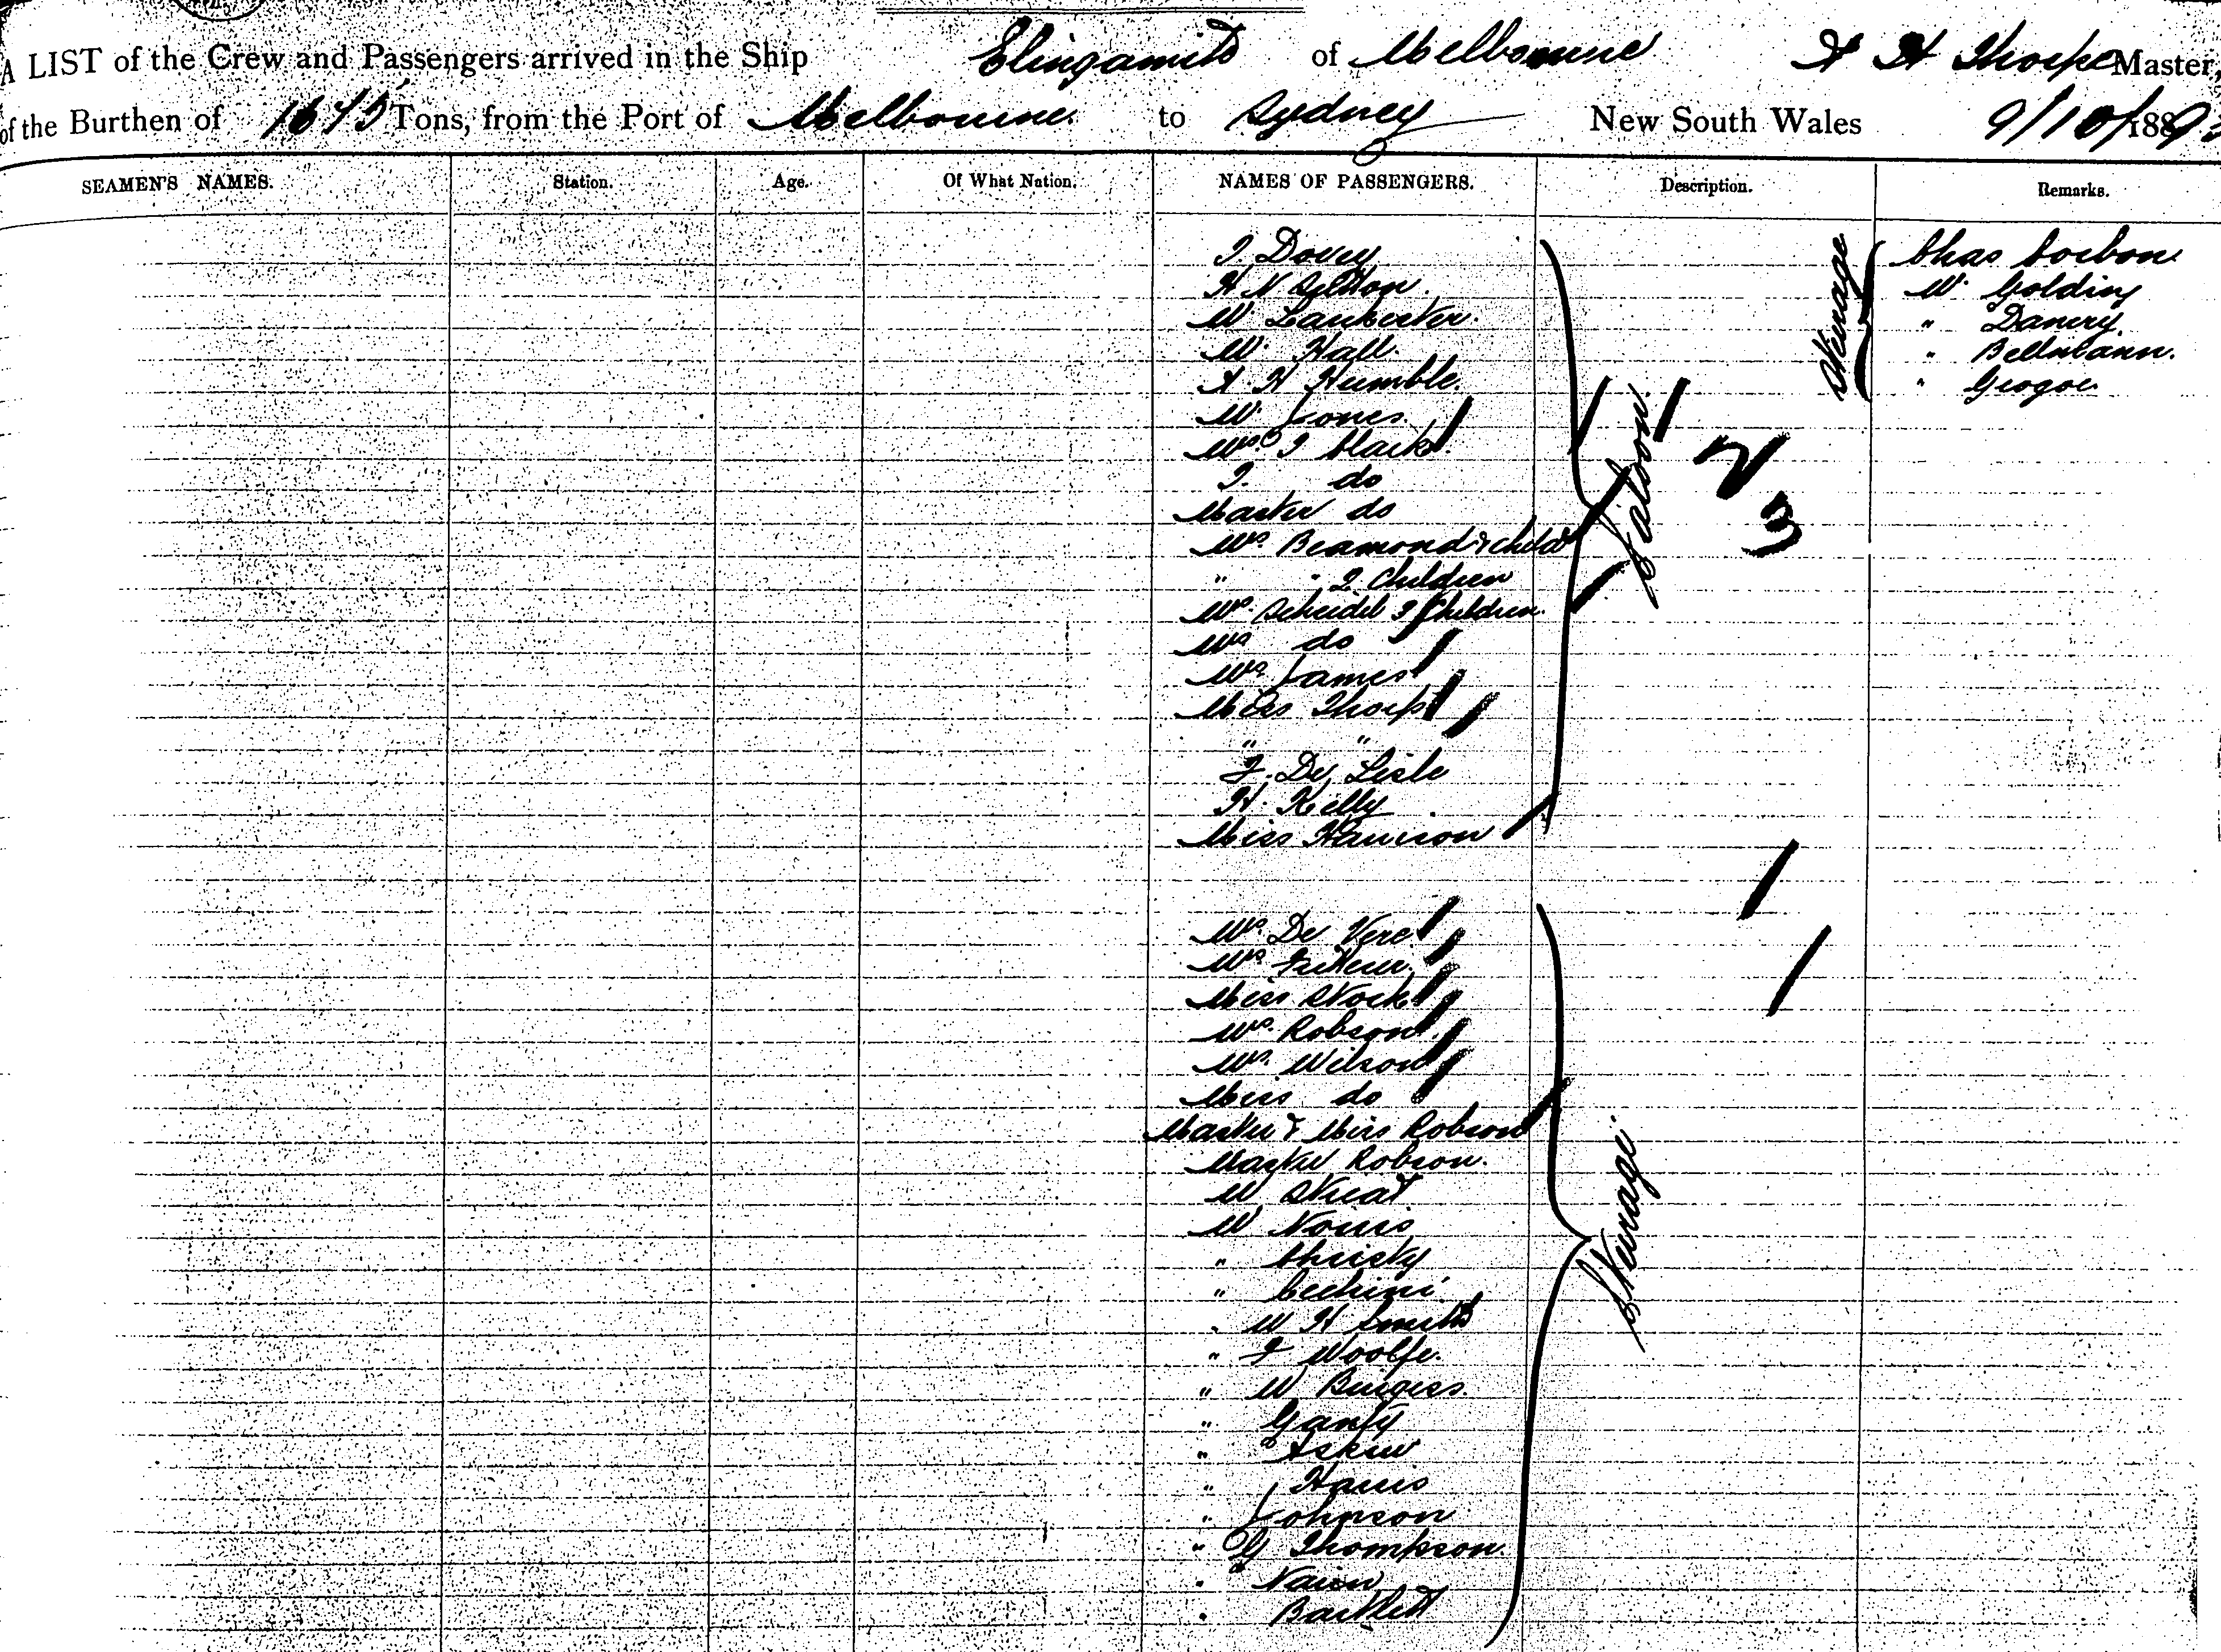 A LIST of the Crew and Passengers arrived in the Ship Elingamite of Melbourne Thorpe Master,
of the Burthen of 1675 Tons, from the Port of Melbourne to Sydney New South Wales 9/10/1889
SEAMEN'S NAMES. Station. Age. Of What Nation. NAMES OF PASSENGERS. Description. Remarks.
Steerage
Chas Corbon
W. Golding
" Danery.
" Bellmann.
"
H N
W
W. Hall.
A. H Humble.
W. Jones
Mrs. J Clack
J. do
Master do
Mrs. Beamond & child
" " 2 Children
Mrs. Scheidel 3 Children.
Mrs do
Mrs James
Miss Thorpe
" "
F. De Lisle
H. Kelly
Miss Harrison
Saloon.
1
2
3
Mrs. De Vere
Mrs
Miss Stock
Mrs. Robson
Mrs. Wilson
Miss do
Master & Miss Robson
Master Robson.
W Streat
W Norris
" Christy
" Cechini
" W H Smith
" F Woolfe.
" W Burgess
" Ganly
" Askew
" Harris
" Johnson
" G Thompson.
"
" Bartlett
Steerage.